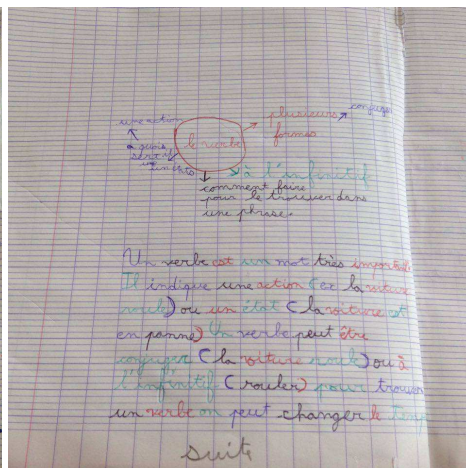 une action
plusieurs
conjuguer
formes
le verbe
à quoi
sert il
un état
à l'infinitif
comment faire
pour le trouver dans
une phrase.
Un verbe est un mot très important
Il indique une action (ex la voiture
roule) ou un état (la voiture est
en panne) Un verbe peut être
conjuguer (la voiture roule) ou à
l'infinitif (rouler) pour trouver
un verbe on peut changer le temps
suite